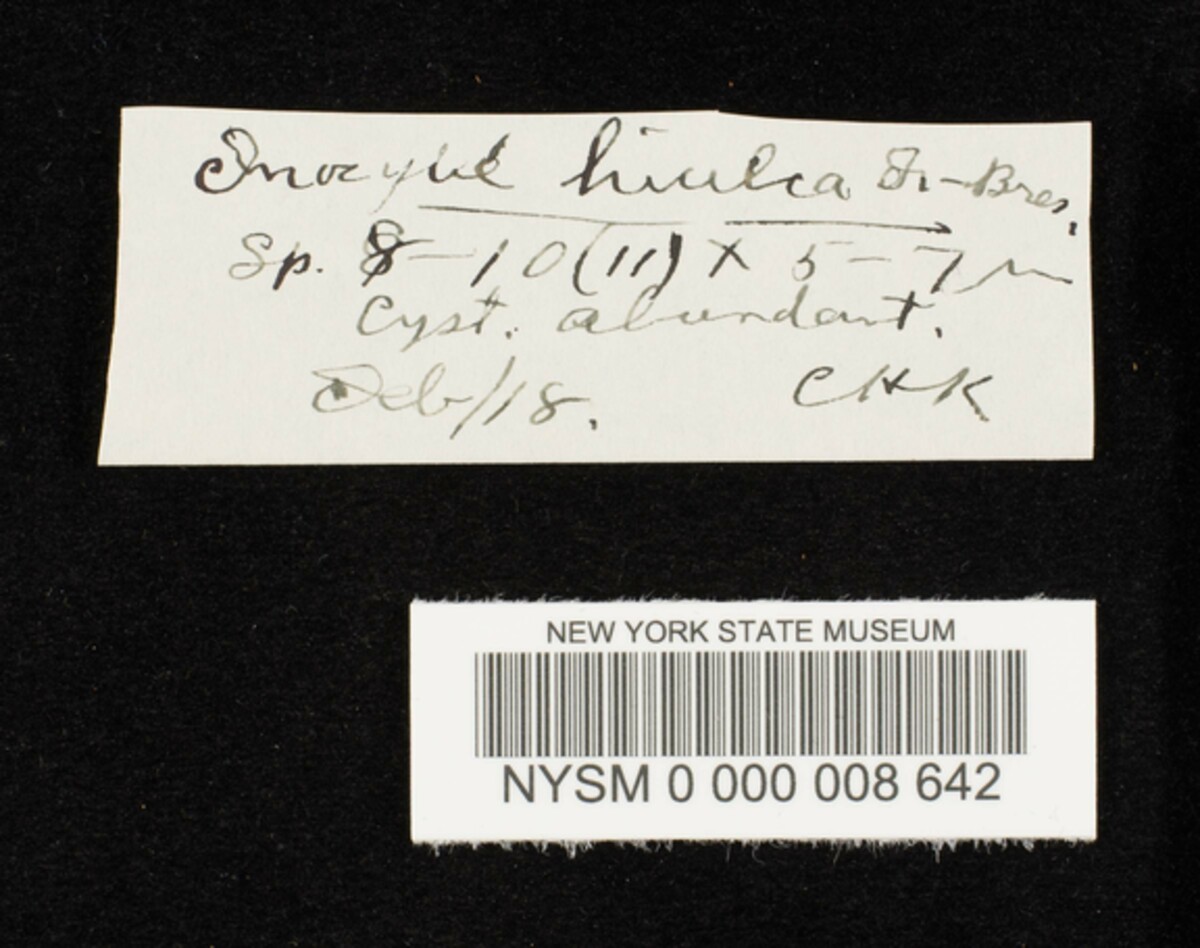 Inocybe hiulca Fr-Bres.
Sp. 8-10(11) x 5-7 μ
Cyst. abundant.
Feb/18. CHK
NEW YORK STATE MUSEUM
NYSM 0 000 008 642